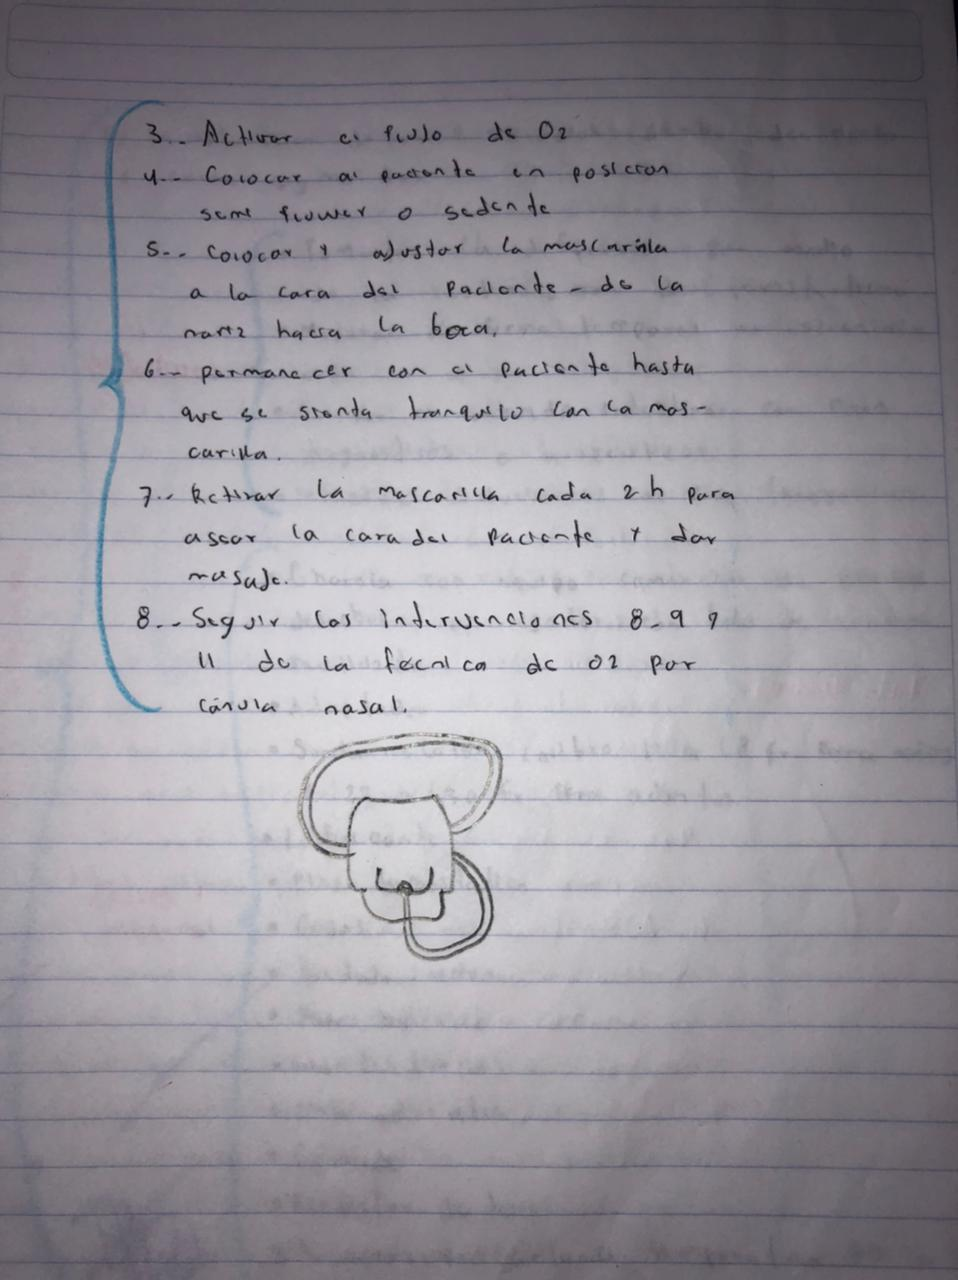 3.- Activar el flujo de O2
4.- Colocar al paciente en posicion
semi flower o sedente
5.- Colocar y ajustar la mascarilla
a la cara del paciente - de la
nariz hacia la boca.
6.- permanecer con el paciente hasta
que se sienta tranquilo con la mas-
carilla.
7.- Retirar la mascarilla cada 2 h para
asear la cara del paciente y dar
masaje.
8.- Seguir las intervenciones 8, 9 y
11 de la técnica de O2 por
cánula nasal.